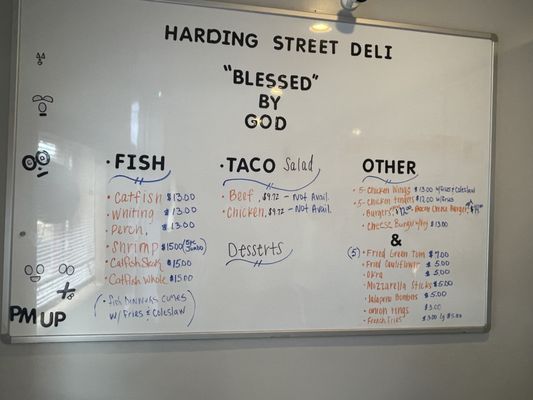 HARDING STREET DELI
"BLESSED"
BY
GOD
• FISH
• Catfish $13.00
• Whiting $13.00
• Perch. $13.00
• Shrimp $15.00
• Catfish Steak $15.00
• Catfish Whole $15.00
• Fish Dinners comes
w/ Fries & Coleslaw
• TACO Salad
• Beef. $9.72 – Not Avail.
• Chicken. $9.72 – Not Avail.
Desserts
OTHER
• 5- Chicken Wings $13.00 w/Fries & Coleslaw
• 5- Chicken tenders $12.00 w/Fries
• Burgers, Bacon Cheese Burger,
• Cheese Burger $13.00
&
(5) • Fried Green Tom $7.00
• Fried Cauliflower $5.00
• Okra $5.00
• Mozzarella Sticks $5.00
• Jalapeno Bombers $5.00
• onion rings $3.00
• French Fries $3.00 Lg $5.00
PM UP